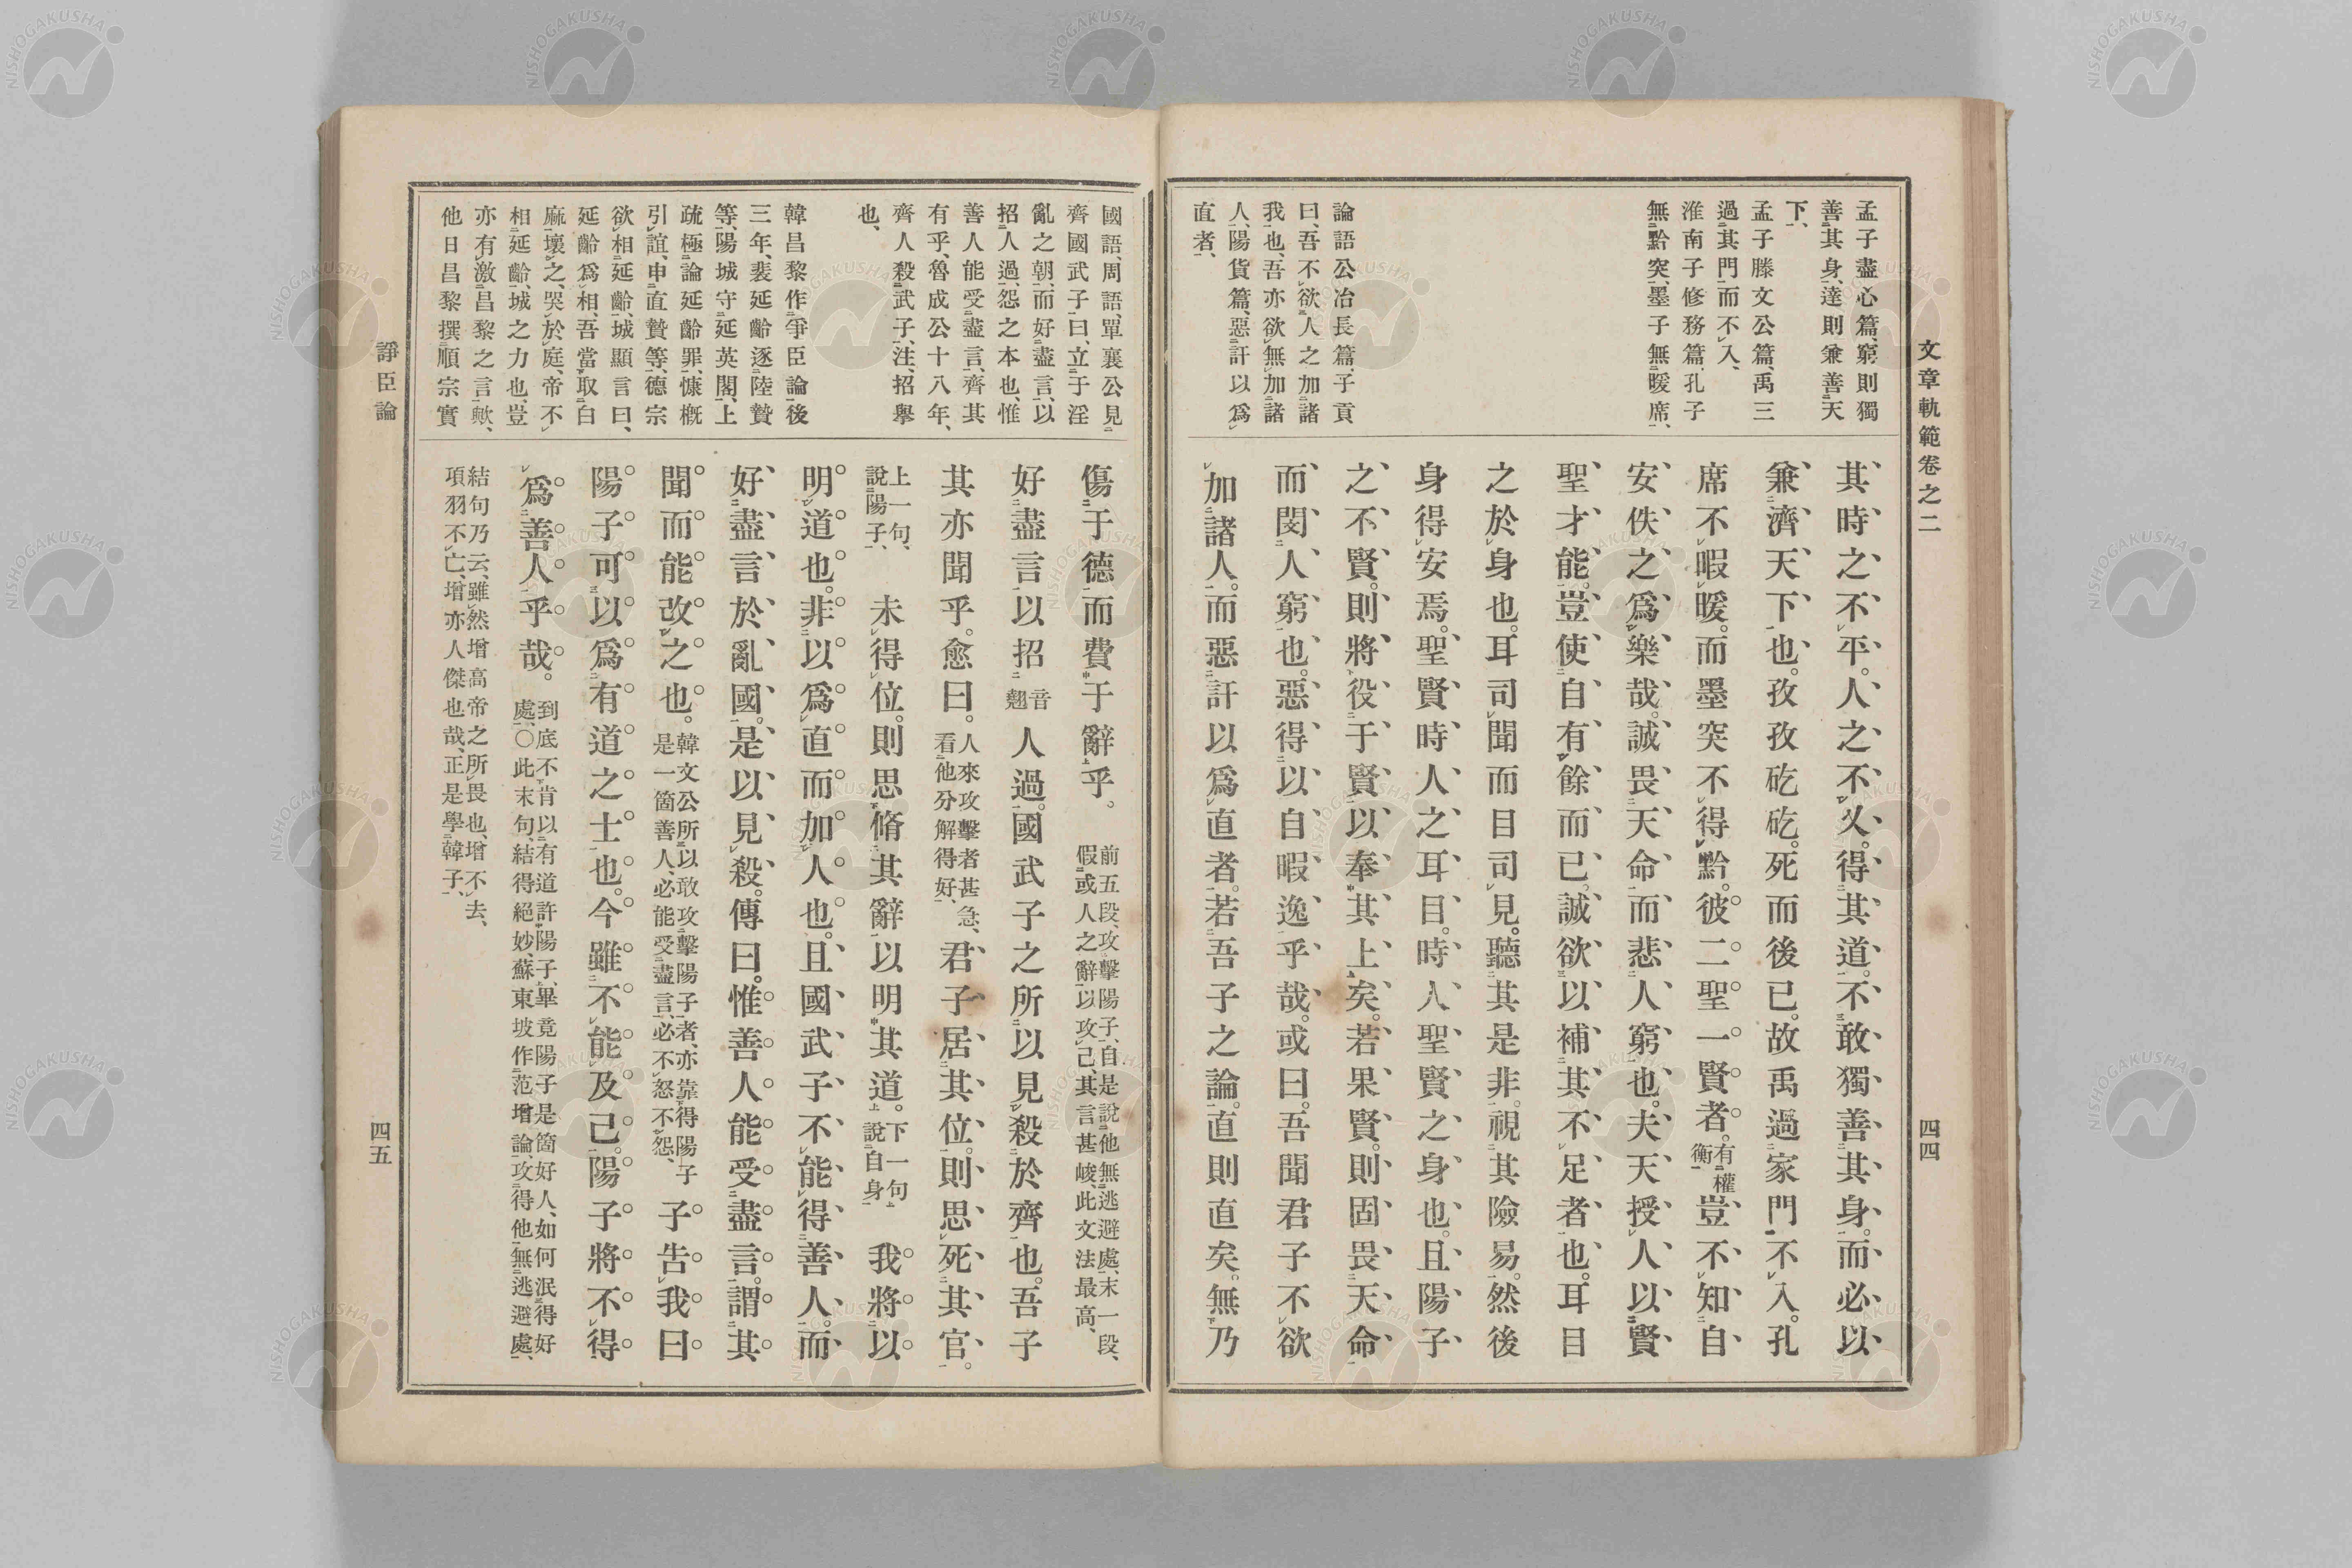 文章軌範卷之二
四四
孟子盡心篇、窮則獨
善其身、達則兼善天
下、
孟子滕文公篇、禹三
過其門而不入、
淮南子修務篇、孔子
無黔突、墨子無暖席、
論語公冶長篇、子貢
曰、吾不欲人之加諸
我也、吾亦欲無加諸
人、陽貨篇、惡訐以爲
直者、
其時之不平。人之不乂。得其道。不敢獨善其身。而必以
兼濟天下也。孜孜矻矻。死而後已。故禹過家門不入。孔
席不暇暖。而墨突不得黔。彼二聖一賢者。有權衡豈不知自
安佚之爲樂哉。誠畏天命而悲人窮也。夫天授人以賢
聖才能。豈使自有餘而已。誠欲以補其不足者也。耳目
之於身也。耳司聞而目司見。聽其是非。視其險易。然後
身得安焉。聖賢時人之耳目。時人聖賢之身也。且陽子
之不賢。則將役于賢以奉其上矣。若果賢。則固畏天命
而閔人窮也。惡得以自暇逸乎哉。或曰。吾聞君子不欲
加諸人。而惡訐以爲直者。若吾子之論。直則直矣。無乃
國語、周語、單襄公見
齊國武子曰、立于淫
亂之朝、而好盡言、以
招人過、怨之本也、惟
善人能受盡言、齊其
有乎、魯成公十八年、
齊人殺武子、注、招擧
也、
韓昌黎作爭臣論後
三年、裴延齡逐陸贄
等、陽城守延英閣、上
疏極論延齡罪、慷慨
引誼、申直贄等、德宗
欲相延齡、城顯言曰、
延齡爲相、吾當取白
麻壞之、哭於庭、帝不
相延齡、城之力也、豈
亦有激昌黎之言歟、
他日昌黎撰順宗實
傷于德而費于辭乎。前五段、攻擊陽子、自是說他無逃避處、末一段、假或人之辭以攻己、其言甚峻、此文法最高、
好盡言以招音翹人過。國武子之所以見殺於齊也。吾子
其亦聞乎。愈曰。人來攻擊者甚急、看他分解得好、君子居其位。則思死其官。
上一句、說陽子、未得位。則思脩其辭以明其道。下一句說自身我將以
明道也。非以爲直而加人也。且國武子不能得善人。而
好盡言於亂國。是以見殺。傳曰。惟善人能受盡言。謂其
聞而能改之也。韓文公所以敢攻擊陽子者、亦靠得陽子是一箇善人、必能受盡言、必不怒不怨、子告我曰
陽子可以爲有道之士也。今雖不能及己。陽子將不得
爲善人乎哉。到底不肯以有道許陽子、畢竟陽子是箇好人、如何泯得好處、〇此末句、結得絕妙、蘇東坡作范增論、攻得他無逃避處、
結句乃云、雖然增高帝之所畏也、增不去、項羽不亡、增亦人傑也哉、正是學韓子、
諍臣論
四五